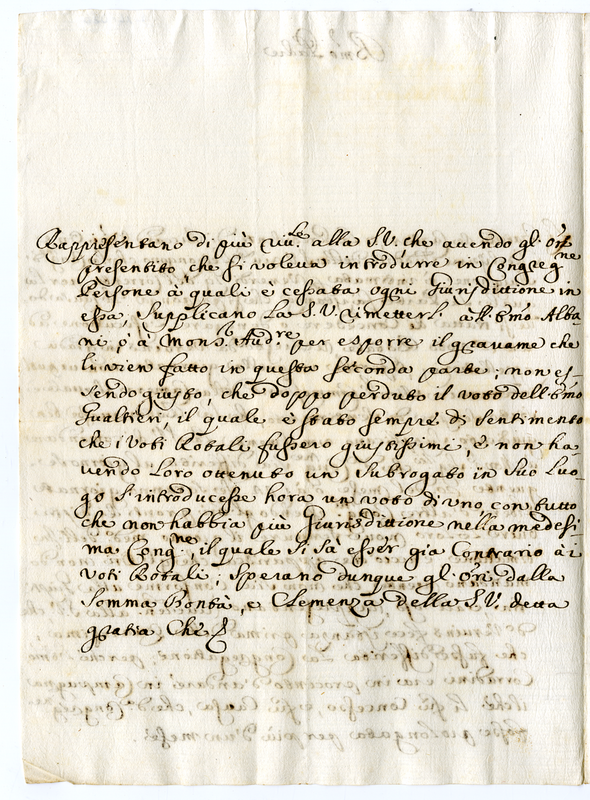 Rappresentano di più riu.te alla S.V. che avendo gl. Orri
presentito che si voleva introdurre in Congreg.ne
Persone à quali è cessata ogni Giurisdittione in
essa, Supplicano la S.V. rimetterli à S. Emo Alba-
ni ò à Mons.r Aud.re per esporre il gravame che
li vien fatto in questa seconda parte; non es-
sendo giusto, che doppo perduto il voto dell'Emo
Gualtieri, il quale è stato sempre di sentimento
che i voti Rotali fussero giustissimi, è non ha-
vendo Loro ottenuto un Subrogato in Suo Luo-
go s'introducesse hora un voto di uno, con tutto
che non habbia più Giurisdittione nella medesi
ma Cong.ne, il quale si sà esser gia Contrario à i
voti Rotali; Sperano dunque gl. Ori dalla
Somma Bontà, e Clemenza della S.V. detta
gratia Che